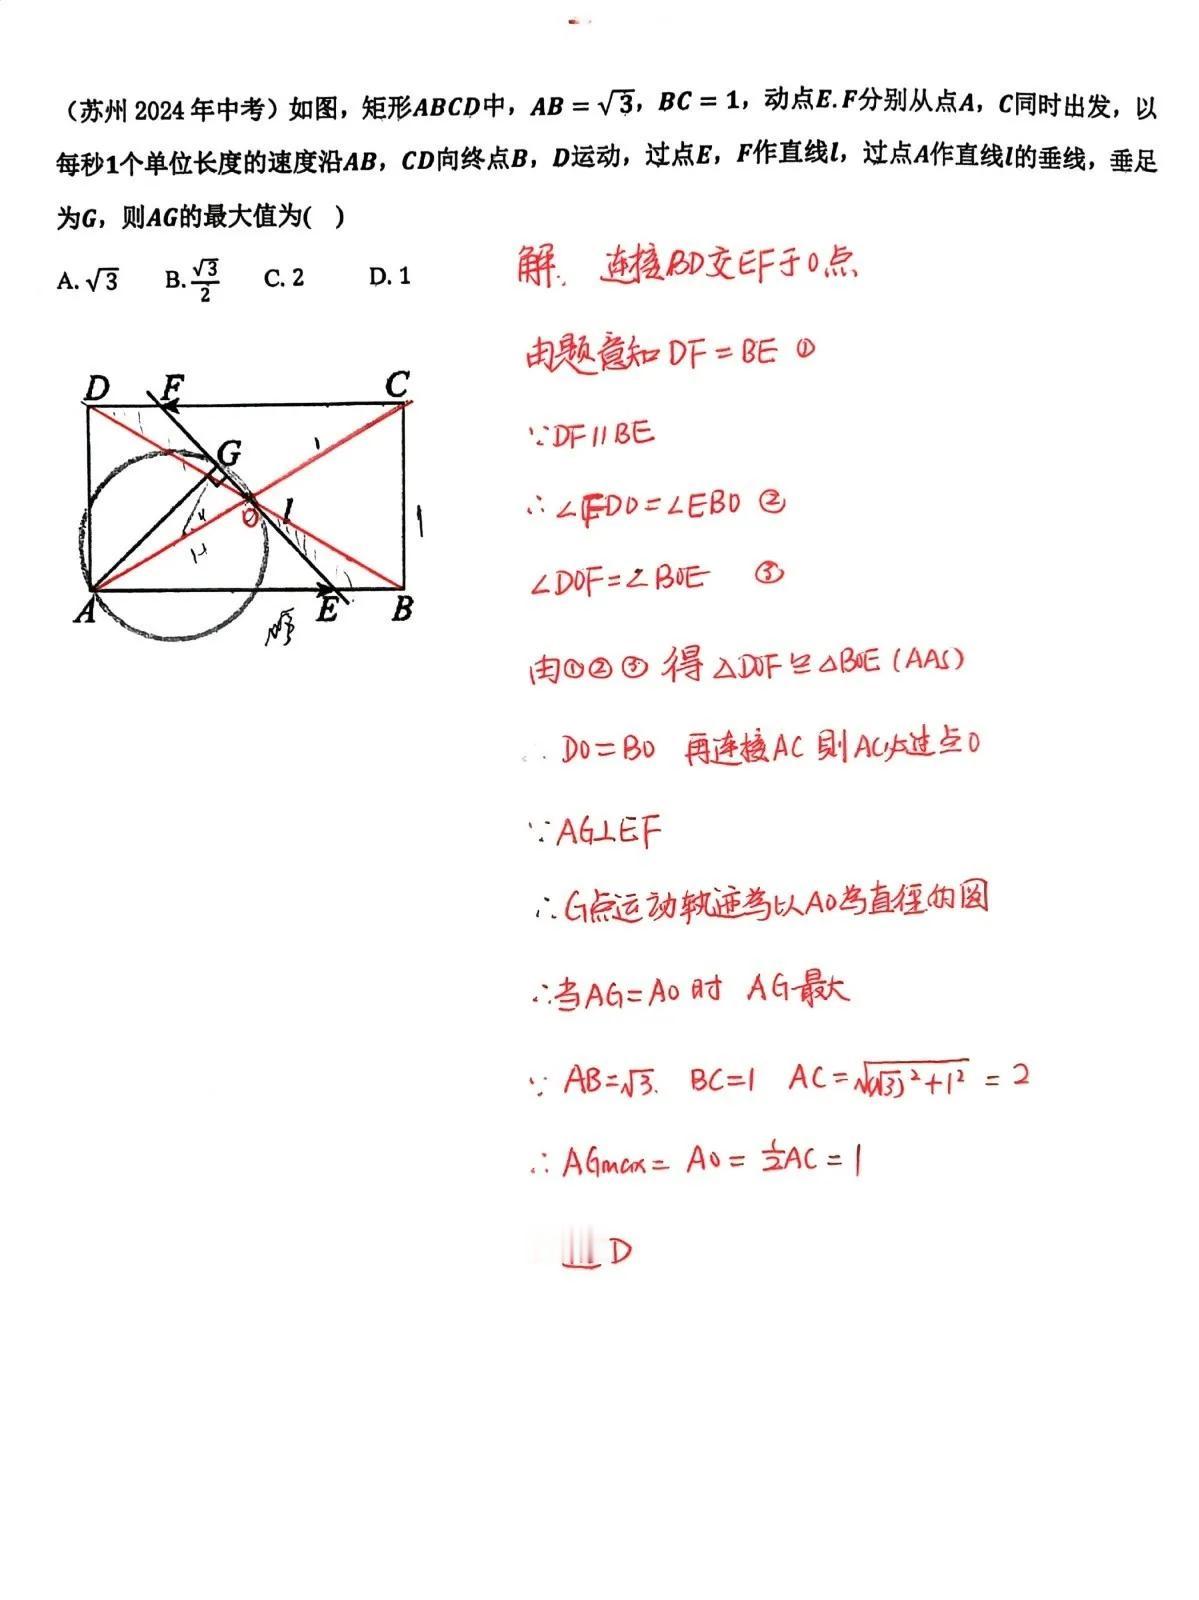 （苏州 2024 年中考）如图，矩形ABCD中，AB = √3，BC = 1，动点E.F分别从点A，C同时出发，以
每秒1个单位长度的速度沿AB，CD向终点B，D运动，过点E，F作直线l，过点A作直线l的垂线，垂足
为G，则AG的最大值为( )
A. √3 B. √3/2 C. 2 D. 1
解. 连接BD交EF于O点
由题意知 DF = BE ①
∵DF∥BE
∴∠FDO=∠EBO ②
∠DOF=∠BOE ③
由①②③得 △DOF≌△BOE (AAS)
∴ DO=BO 再连接AC 則AC必过点O
∵AG⊥EF
∴G点运动轨迹為以AO為直徑的圆
∴当AG=AO时 AG最大
∵ AB=√3. BC=1 AC=√(√3)²+1² = 2
∴ AGmax= AO= ½AC=1
D
D F C
G
O l
H
1
A E B
√3